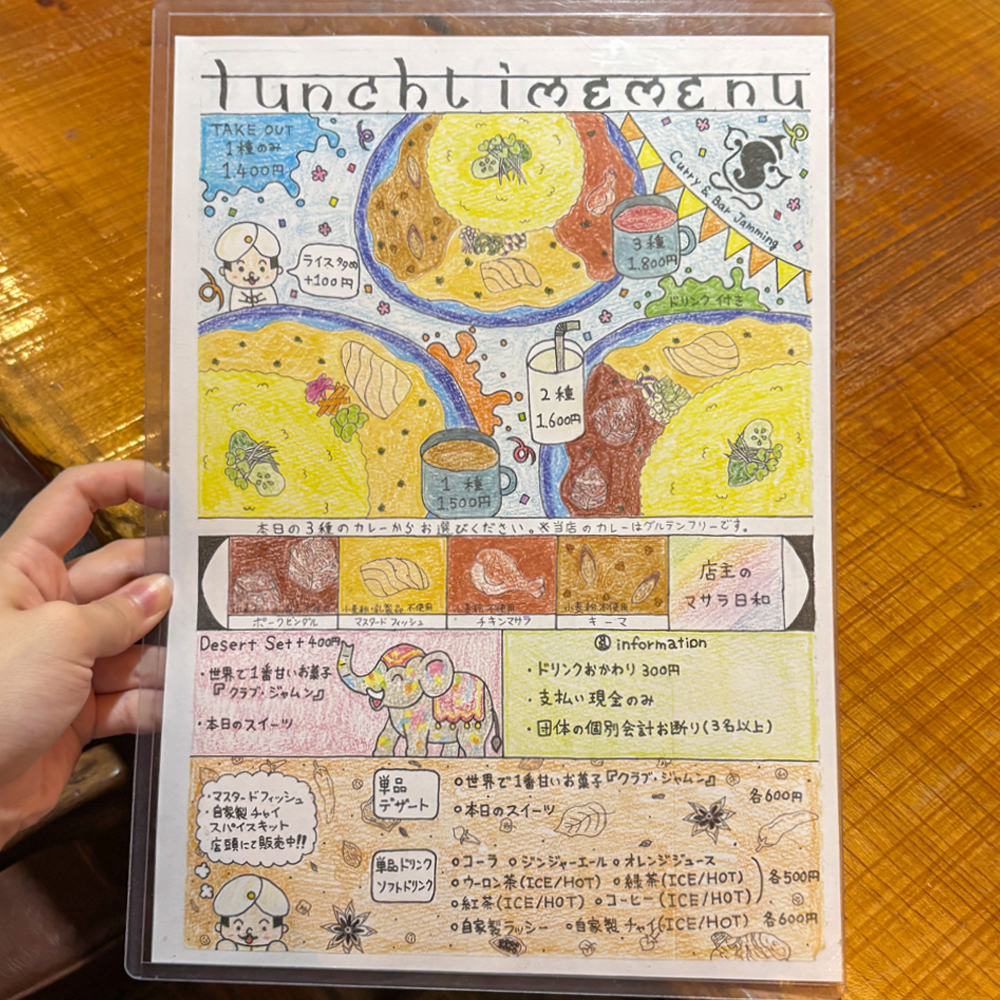 lunchtimemenu
TAKE OUT
1種のみ
1,400円
Curry & Bar Jamming
ライス多め
+100円
3種
1,800円
ドリンク付き
2種
1,600円
1種
1,500円
本日の3種のカレーからお選びください。※当店のカレーはグルテンフリーです。
小麦粉・乳製品 不使用
小麦粉 不使用
小麦粉不使用
ポークビンダル
マスタードフィッシュ
チキンマサラ
キーマ
店主の
マサラ日和
Desert Set+400円
・世界で1番甘いお菓子
『クラブ・ジャムン』
・本日のスイーツ
information
・ドリンクおかわり 300円
・支払い現金のみ
・団体の個別会計お断り(3名以上)
・マスタードフィッシュ
・自家製チャイ
スパイスキット
店頭にて販売中!!
単品
デザート
○世界で1番甘いお菓子『クラブ・ジャムン』
○本日のスイーツ
各600円
単品ドリンク
ソフトドリンク
○コーラ ○ジンジャーエール ○オレンジジュース
○ウーロン茶(ICE/HOT) ○緑茶(ICE/HOT)
○紅茶(ICE/HOT) ○コーヒー(ICE/HOT)
各500円
○自家製ラッシー ○自家製チャイ(ICE/HOT) 各600円